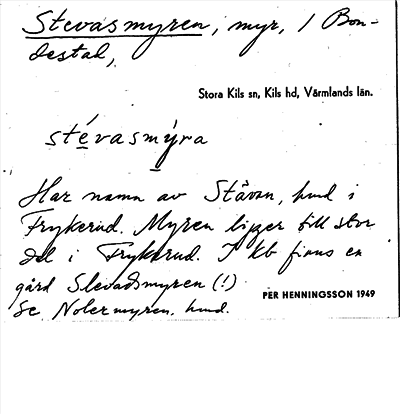 Stevasmyren, myr, / Bon-
destad,
Stora Kils sn, Kils hd, Värmlands län.
stévasmýra
Har namn av Stävan, hmd i
Frykerud. Myren ligger till stor
del i Frykerud. I kb finns en
gård Slevadsmyren (!)
PER HENNINGSSON 1949
Se Nolermyren, hmd.